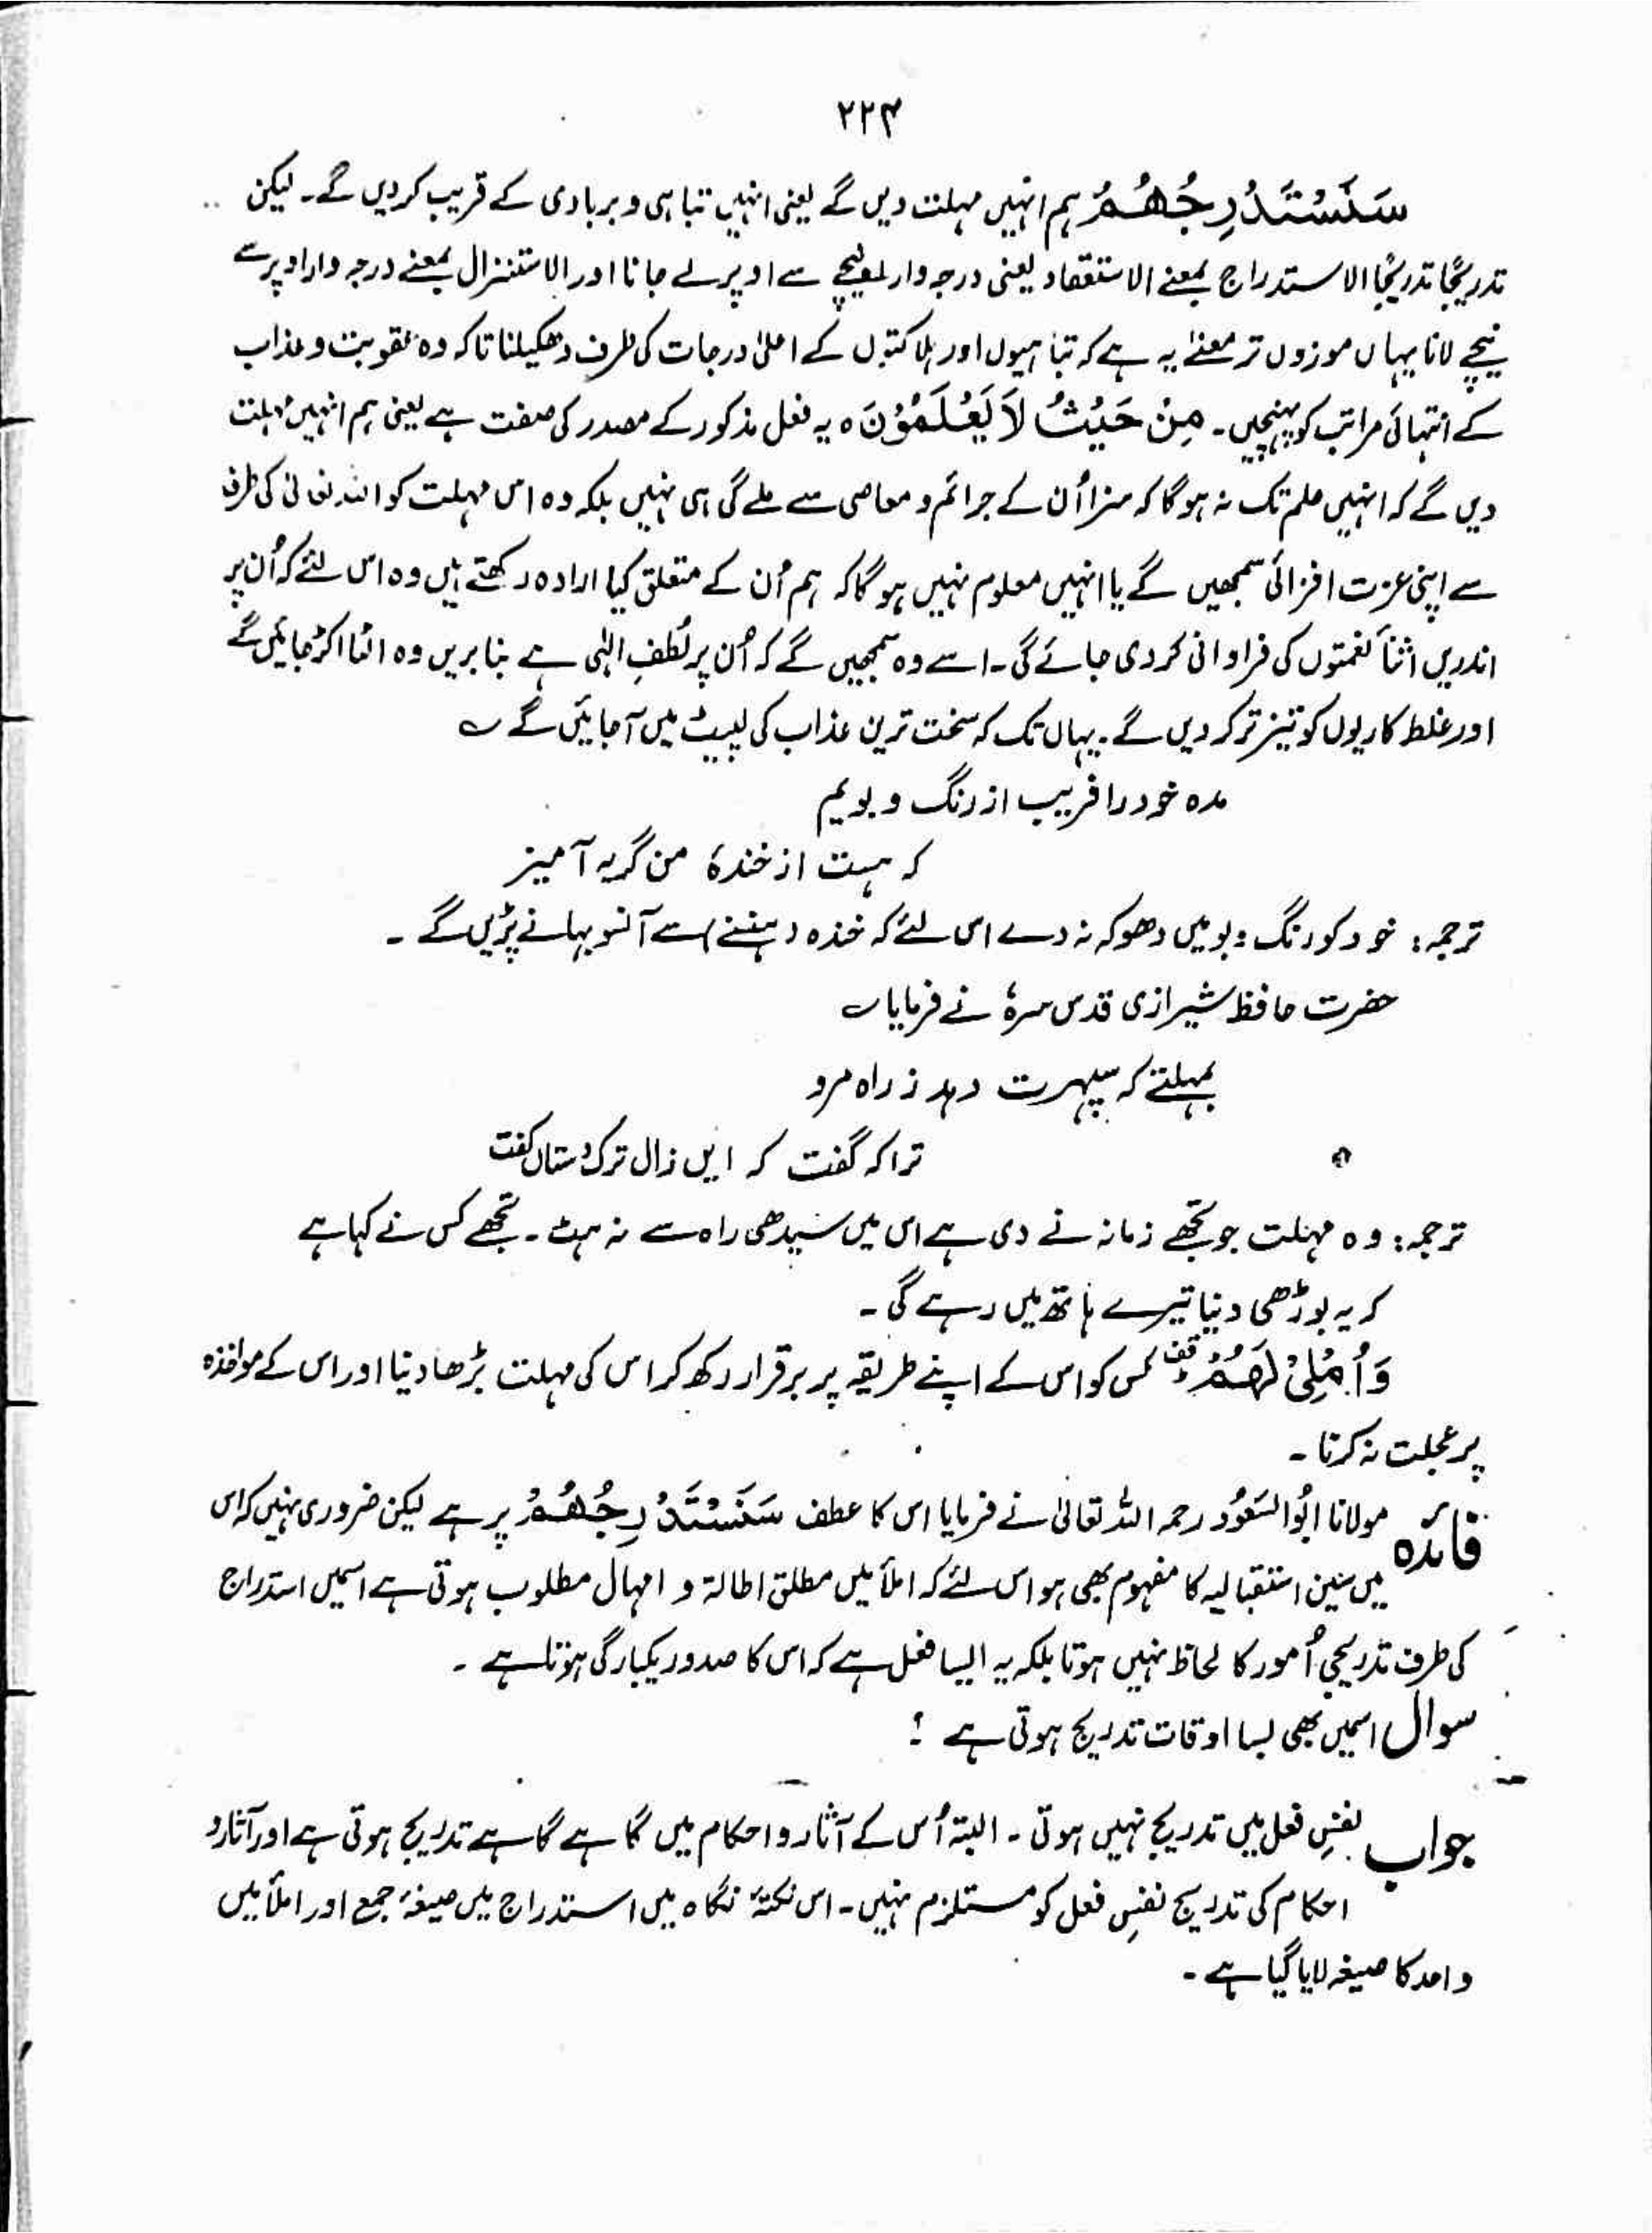 ۲۲۴
سَنَسْتَدْرِجُهُمْ ہم انہیں مہلت دیں گے یعنی انہیں تباہی و بربادی کے قریب کر دیں گے۔ لیکن
تدریجًا تدریجًا الاستدراج بمعنے الاستقعاد یعنی درجہ وار نیچے سے اوپر لے جانا اور الاستنزال بمعنے درجہ وار اوپر سے
نیچے لانا یہاں موزوں تر معنےٰ یہ ہے کہ تباہیوں اور ہلاکتوں کے اعلیٰ درجات کی طرف دھکیلنا تاکہ وہ عقوبت و عذاب
کے انتہائی مراتب کو پہنچیں۔ مِنْ حَيْثُ لَا يَعْلَمُوْنَ ہ یہ فعل مذکور کے مصدر کی صفت ہے یعنی ہم انہیں مہلت
دیں گے کہ انہیں علم تک نہ ہوگا کہ سزا اُن کے جرائم و معاصی سے ملے گی ہی نہیں بلکہ وہ اس مہلت کو اللہ تعالیٰ کی طرف
سے اپنی عزت افزائی سمجھیں گے یا انہیں معلوم نہیں ہوگا کہ ہم اُن کے متعلق کیا ارادہ رکھتے ہیں وہ اس لئے کہ اُن پر
اندریں اثنأ نعمتوں کی فراوانی کر دی جائے گی۔ اسے وہ سمجھیں گے کہ اُن پر لُطفِ الٰہی ہے بنا بریں وہ الٹا اکڑ جائیں گے
اور غلط کاریوں کو تیز تر کر دیں گے۔ یہاں تک کہ سخت ترین عذاب کی لپیٹ میں آجائیں گے ؎
مدہ خود را فریب از رنگ و بویم
کہ ہست از خندۂ من گریہ آمیز
ترجمہ: خود کو رنگ و بو میں دھوکہ نہ دے اس لئے کہ خندہ (ہنسنے) سے آنسو بہانے پڑیں گے ۔
حضرت حافظ شیرازی قدس سرہٗ نے فرمایا ؎
بمہلتے کہ سپہرت دہد ز راہ مرو
ترا کہ گفت کہ ایں زال ترک دستاں گفت
ترجمہ: وہ مہلت جو تجھے زمانہ نے دی ہے اس میں سیدھی راہ سے نہ ہٹ۔ تجھے کس نے کہا ہے
کہ یہ بوڑھی دنیا تیرے ہاتھ میں رہے گی ۔
وَاُمْلِيْ لَهُمْ قف کسی کو اس کے اپنے طریقہ پر برقرار رکھ کر اس کی مہلت بڑھا دینا اور اس کے مواخذہ
پر عجلت نہ کرنا ۔
فائدہ مولانا ابُو السّعُود رحمہ اللہ تعالیٰ نے فرمایا اس کا عطف سَنَسْتَدْرِجُهُمْ پر ہے لیکن ضروری نہیں کہ اس
میں سین استقبالیہ کا مفہوم بھی ہو اس لئے کہ املأ میں مطلق اطالۃ و امہال مطلوب ہوتی ہے اسمیں استدراج
کی طرف تدریجی اُمور کا لحاظ نہیں ہوتا بلکہ یہ ایسا فعل ہے کہ اس کا صدور یکبارگی ہوتا ہے ۔
سوال اسمیں بھی بسا اوقات تدریج ہوتی ہے ؟
جواب نفسِ فعل میں تدریج نہیں ہوتی ۔ البتہ اُس کے آثار و احکام میں گاہے گاہے تدریج ہوتی ہے اور آثار و
احکام کی تدریج نفسِ فعل کو مستلزم نہیں ۔ اس نکتۂ نگاہ میں استدراج میں صیغۂ جمع اور املأ میں
واحد کا صیغہ لایا گیا ہے ۔